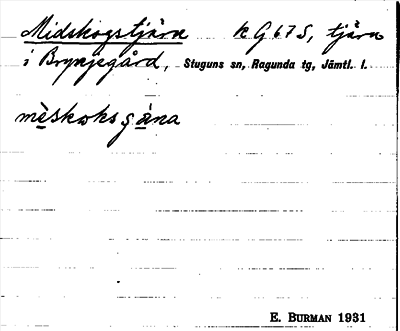 Midskogstjärn k G 67 S, tjärn
i Brynjegård, Stuguns sn, Ragunda tg, Jämtl. l.
E. BURMAN 1931